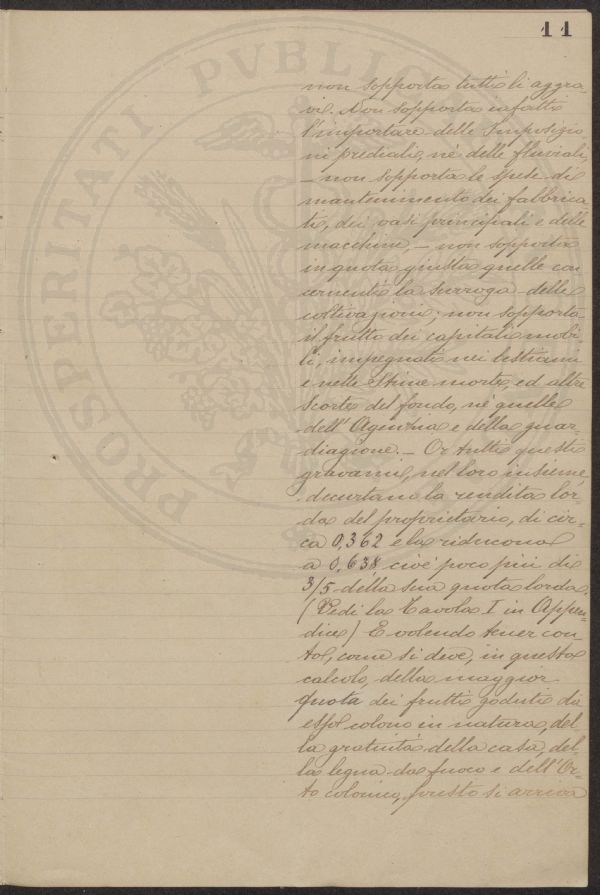 11
non sopporta tutti li aggra-
vi. Non sopporta infatti
l'importare delle Imposizio
ni prediali, nè delle fluviali,
- non sopporta le spese di
mantenimento dei fabbrica
ti, dei vasi principali e delle
macchine, - non sopporta
in quota giusta quelle con
cernenti la surroga delle
coltivazioni; non sopporta
il frutto dei capitali mobi-
li, impegnati nei bestiami
e nelle stime morte, ed altre
Scorte del fondo, nè quelle
dell'Agenzia e della guar-
diagione. - Or tutti questi
gravami, nel loro insieme,
decurtano la rendita lor-
da del proprietario, di cir-
ca 0,362 e la riducono
a 0,638, cioè poco più di
3/5 della sua quota lorda.
(Vedi la Tavola I in Appen-
dice) E volendo tener con-
to, come si deve, in questo
calcolo, della maggior
quota dei frutti goduti da
esso colono in natura, del-
la gratuità della casa, del-
la legna da fuoco e dell'Or-
to colonico, presto si arriva
PROSPERITATI PVBLIC